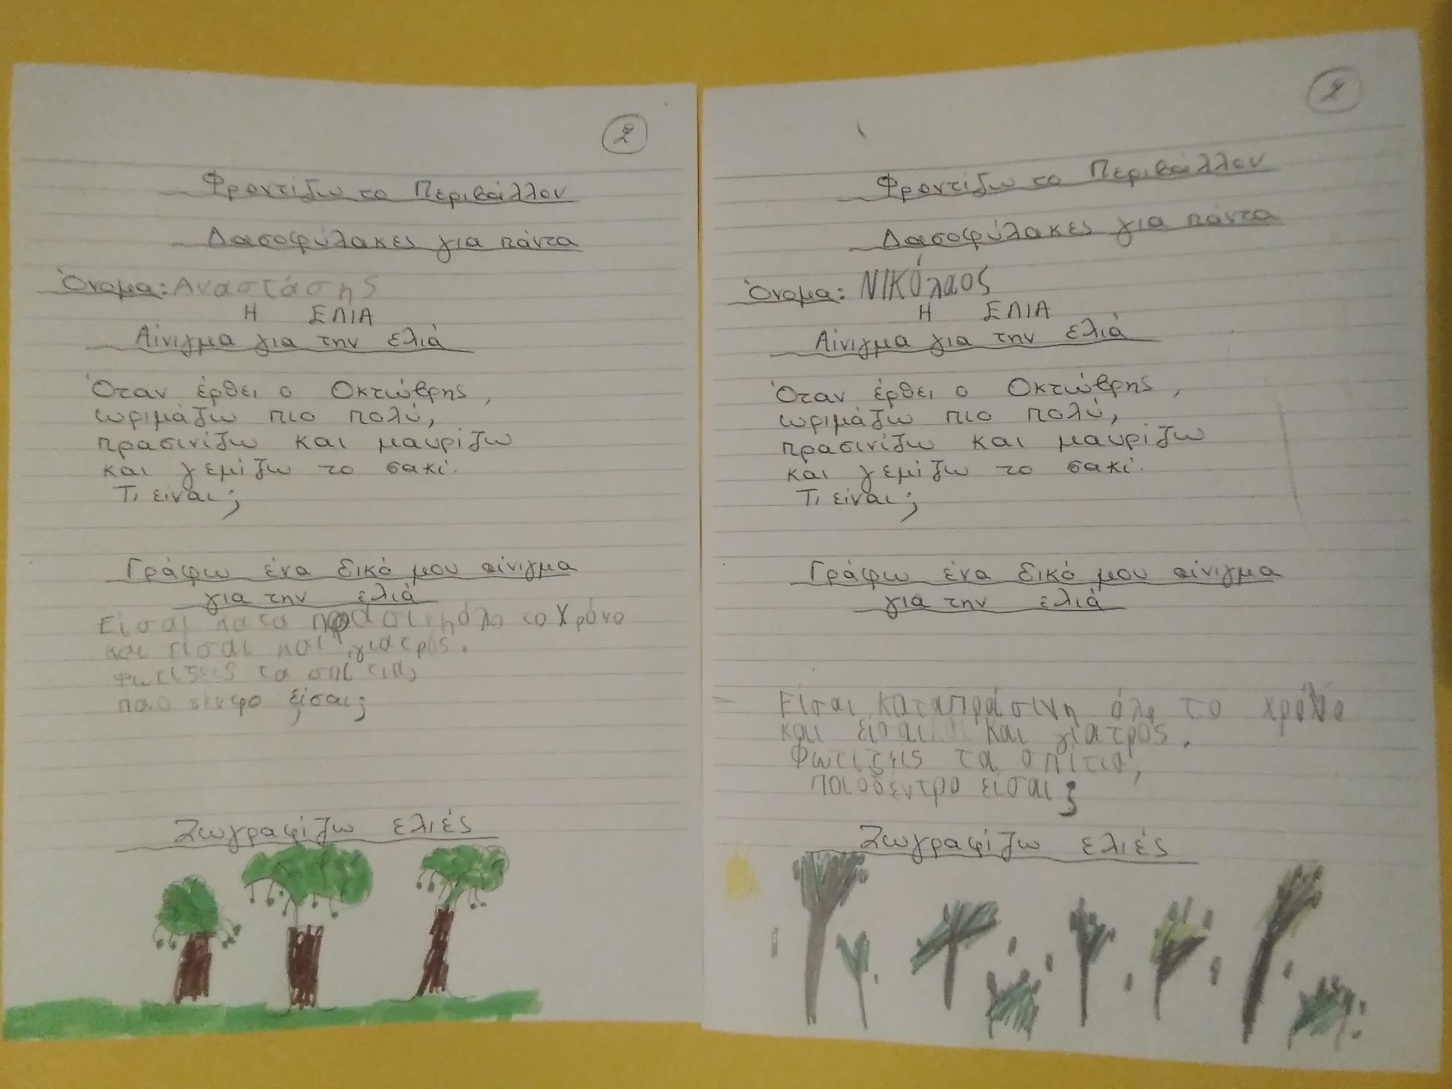 2
Φροντίζω το Περιβάλλον
Δασοφύλακες για πάντα
Όνομα: Αναστάσης
Η ΕΛΙΑ
Αίνιγμα για την ελιά
Όταν έρθει ο Οκτώβρης,
ωριμάζω πιο πολύ,
πρασινίζω και μαυρίζω
και γεμίζω το σακί.
Τι είναι;
Γράφω ένα δικό μου αίνιγμα
για την ελιά
Είσαι κατα πρασινη όλο το χρόνο
και είσαι και γιατρός.
τα
είσαι;
Ζωγραφίζω ελιές
2
Φροντίζω το Περιβάλλον
Δασοφύλακες για πάντα
Όνομα: ΝΙΚόλαος
Η ΕΛΙΑ
Αίνιγμα για την ελιά
Όταν έρθει ο Οκτώβρης,
ωριμάζω πιο πολύ,
πρασινίζω και μαυρίζω
και γεμίζω το σακί.
Τι είναι;
Γράφω ένα δικό μου αίνιγμα
για την ελιά
Είσαι καταπράσινη όλο το χρόνο
και εισαι και γιατρός.
Φωτίζεις τα σπίτια,
ποιοδέντρο είσαι;
Ζωγραφίζω ελιές